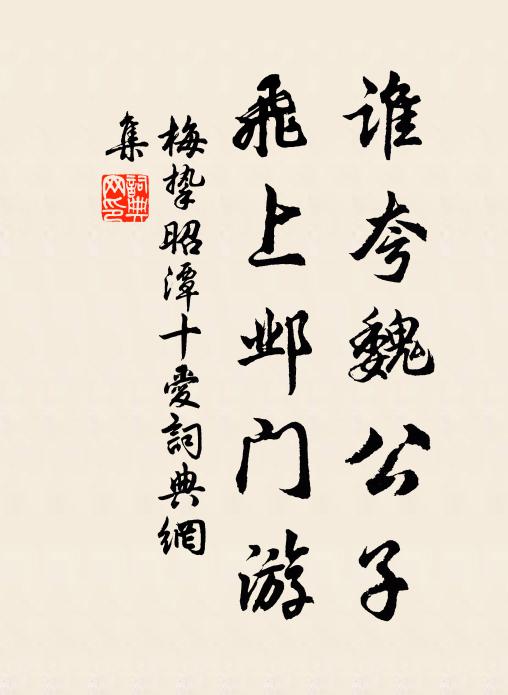 谁夸魏公子
飞上邺门游
梅挚昭潭十爱詞典網
集
詞典
网印